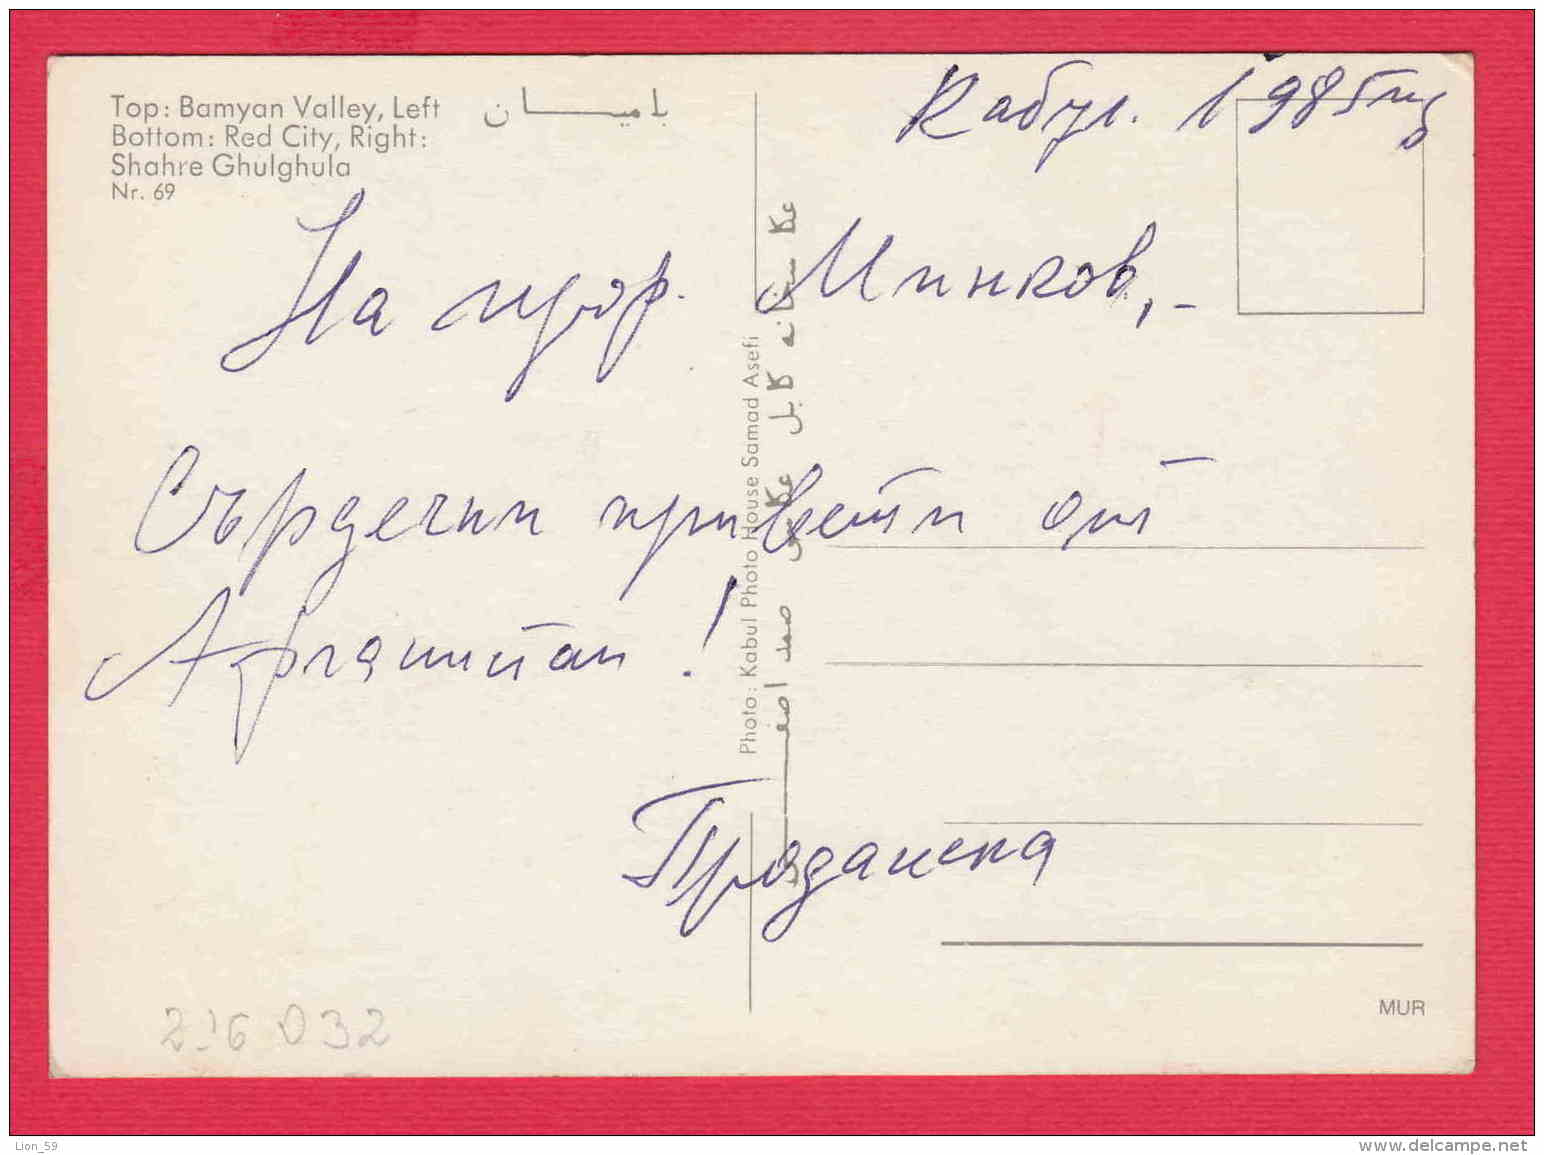 Top: Bamyan Valley, Left
Bottom: Red City, Right:
Shahre Ghulghula
Nr. 69
باميان
Кабул. 1985
На проф. Минков,-
Сърдечни привети от
Афганистан!
Проданска
Photo: Kabul Photo House Samad Asefi
MUR
032
Lion_59
www.delcampe.net